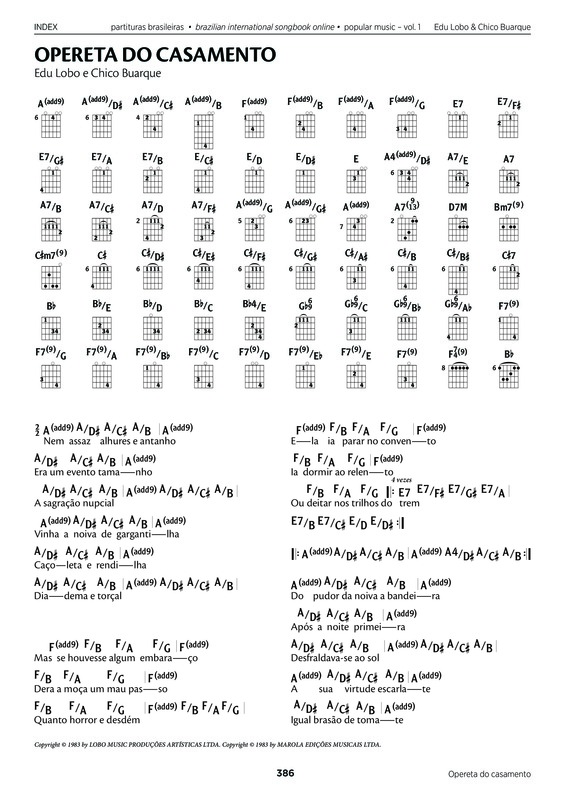 INDEX partituras brasileiras • brazilian international songbook online • popular music – vol. 1 Edu Lobo & Chico Buarque
OPERETA DO CASAMENTO
Edu Lobo e Chico Buarque
A(add9) A(add9)/D♯ A(add9)/C♯ A(add9)/B F(add9) F(add9)/B F(add9)/A F(add9)/G E7 E7/F♯
E7/G♯ E7/A E7/B E/C♯ E/D E/D♯ E A4(add9)/D♯ A7/E A7
A7/B A7/C♯ A7/D A7/F♯ A(add9)/G A(add9)/G♯ A(add9) A7(9 13) D7M Bm7(9)
C♯m7(9) C♯ C♯/D♯ C♯/E♯ C♯/F♯ C♯/G♯ C♯/A♯ C♯/B C♯/B♯ C♯7
B♭ B♭/E B♭/D B♭/C B♭4/E G♭6 9 G♭6 9/C G♭6 9/B♭ G♭6 9/A♭ F7(9)
F7(9)/G F7(9)/A F7(9)/B♭ F7(9)/C F7(9)/D F7(9)/E♭ F7(9)/E F7(9) F7 4(9) B♭
2 2 A(add9) A/D♯ A/C♯ A/B | A(add9)
Nem assaz alhures e antanho
A/D♯ A/C♯ A/B | A(add9)
Era um evento tama—nho
A/D♯ A/C♯ A/B | A(add9) A/D♯ A/C♯ A/B |
A sagração nupcial
A(add9) A/D♯ A/C♯ A/B | A(add9)
Vinha a noiva de garganti—lha
A/D♯ A/C♯ A/B | A(add9)
Caço—leta e rendi—lha
A/D♯ A/C♯ A/B | A(add9) A/D♯ A/C♯ A/B |
Dia—dema e torçal
F(add9) F/B F/A F/G | F(add9)
Mas se houvesse algum embara—ço
F/B F/A F/G | F(add9)
Dera a moça um mau pas—so
F/B F/A F/G | F(add9) F/B F/A F/G |
Quanto horror e desdém
F(add9) F/B F/A F/G | F(add9)
E—la ia parar no conven—to
F/B F/A F/G | F(add9)
Ia dormir ao relen—to
4 vezes
F/B F/A F/G ‖: E7 E7/F♯ E7/G♯ E7/A |
Ou deitar nos trilhos do trem
E7/B E7/C♯ E/D E/D♯ :‖
‖: A(add9) A/D♯ A/C♯ A/B | A(add9) A4/D♯ A/C♯ A/B :‖
A(add9) A/D♯ A/C♯ A/B | A(add9)
Do pudor da noiva a bandei—ra
A/D♯ A/C♯ A/B | A(add9)
Após a noite primei—ra
A/D♯ A/C♯ A/B | A(add9) A/D♯ A/C♯ A/B |
Desfraldava-se ao sol
A(add9) A/D♯ A/C♯ A/B | A(add9)
A sua virtude escarla—te
A/D♯ A/C♯ A/B | A(add9)
Igual brasão de toma—te
Copyright © 1983 by LOBO MUSIC PRODUÇÕES ARTÍSTICAS LTDA. Copyright © 1983 by MAROLA EDIÇÕES MUSICAIS LTDA.
386 Opereta do casamento